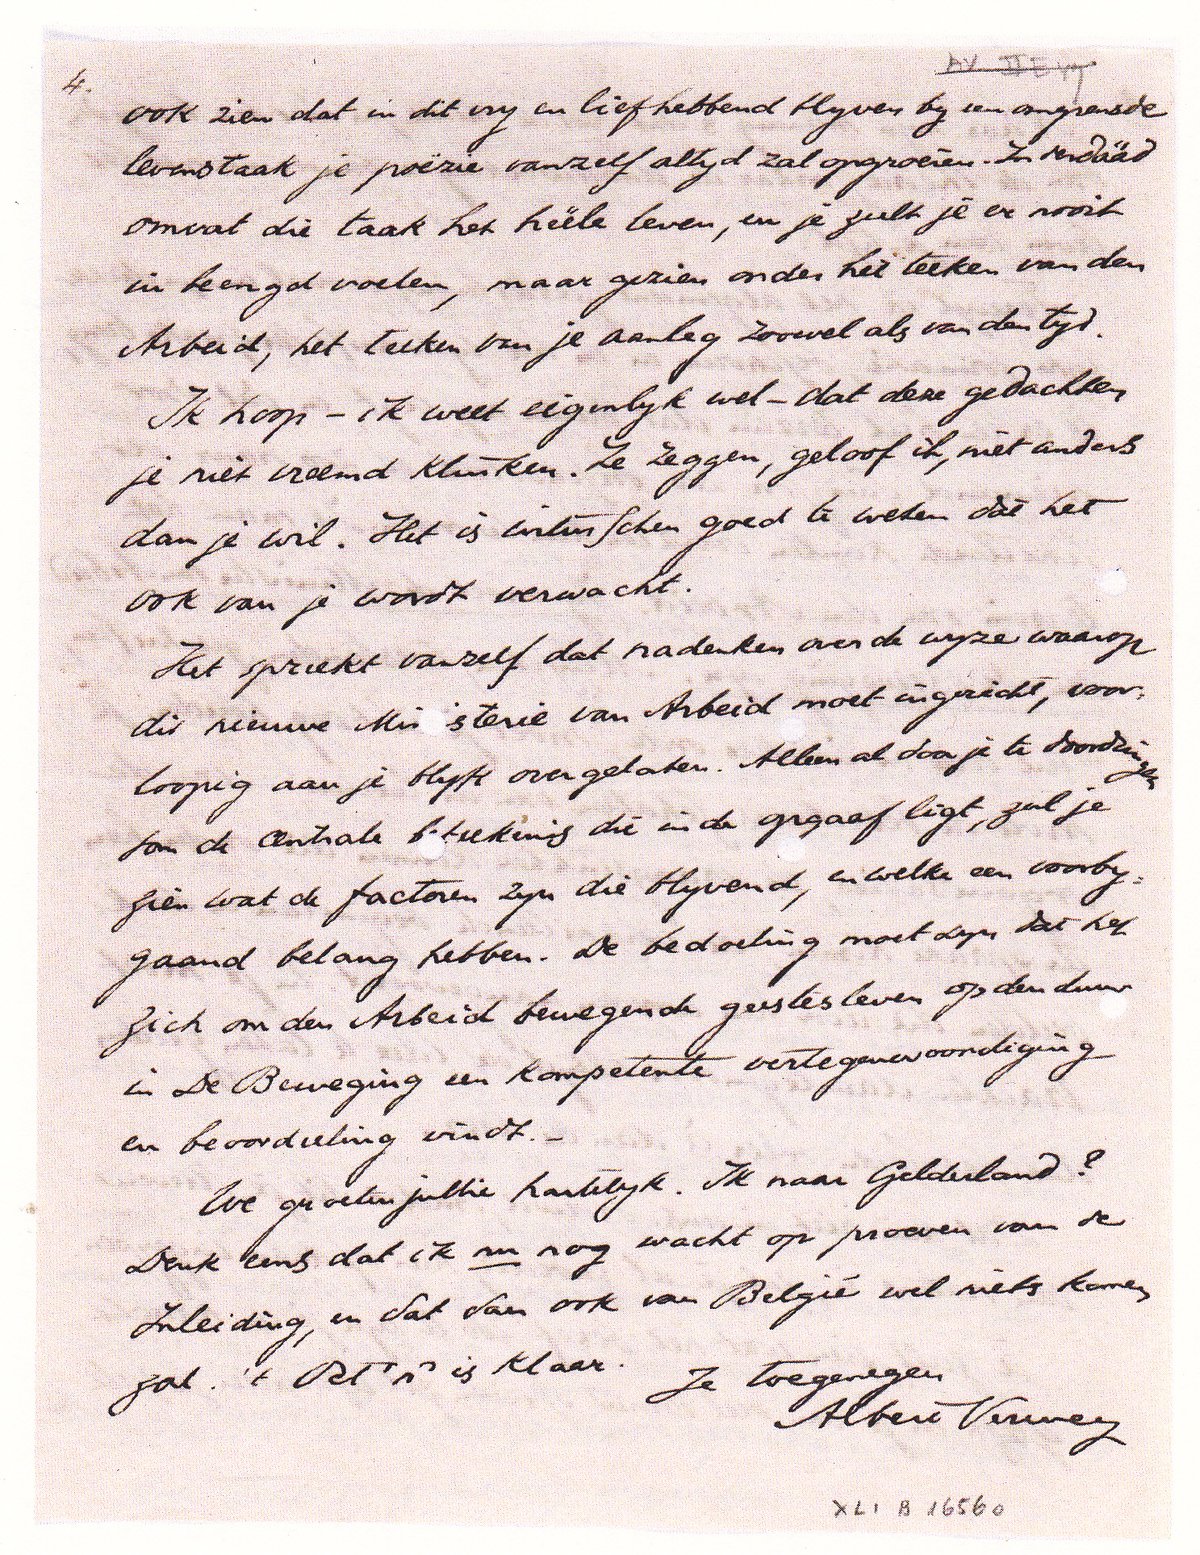 4.
ook zien dat in dit vry en liefhebbend blyven by een omgrensde
levenstaak je poëzie vanzelf altyd zal opgroeien. Inderdaad
omvat die taak het heele leven, en je zult je er nooit
in beengd voelen, maar gezien onder het teeken van den
Arbeid, het teeken van je aanleg zoowel als van den tyd.
Ik hoop – ik weet eigenlyk wel – dat deze gedachten
je niet vreemd klinken. Ze zeggen, geloof ik, niet anders
dan je wil. Het is intusschen goed te weten dat het
ook van je wordt verwacht.
Het spreekt vanzelf dat nadenken over de wyze waarop
dit nieuwe Ministerie van Arbeid moet ingericht, voor-
loopig aan je blyft overgelaten. Alleen al door je te doordringen
van de centrale beteekenis die in de opgaaf ligt, zul je
zien wat de factoren zyn die blyvend, en welke een voorby-
gaand belang hebben. De bedoeling moet zyn dat het
zich om den Arbeid bewegende geestesleven op den duur
in De Beweging een kompetente vertegenwoordiging
en beoordeeling vindt. –
We groeten jullie hartelyk. Ik naar Gelderland?
Denk eens dat ik nu nog wacht op proeven van de
Inleiding, en dat dan ook van België wel niets komen
zal. 't Oct nr is klaar.
Je toegenegen
Albert Verwey
XLI B 16560